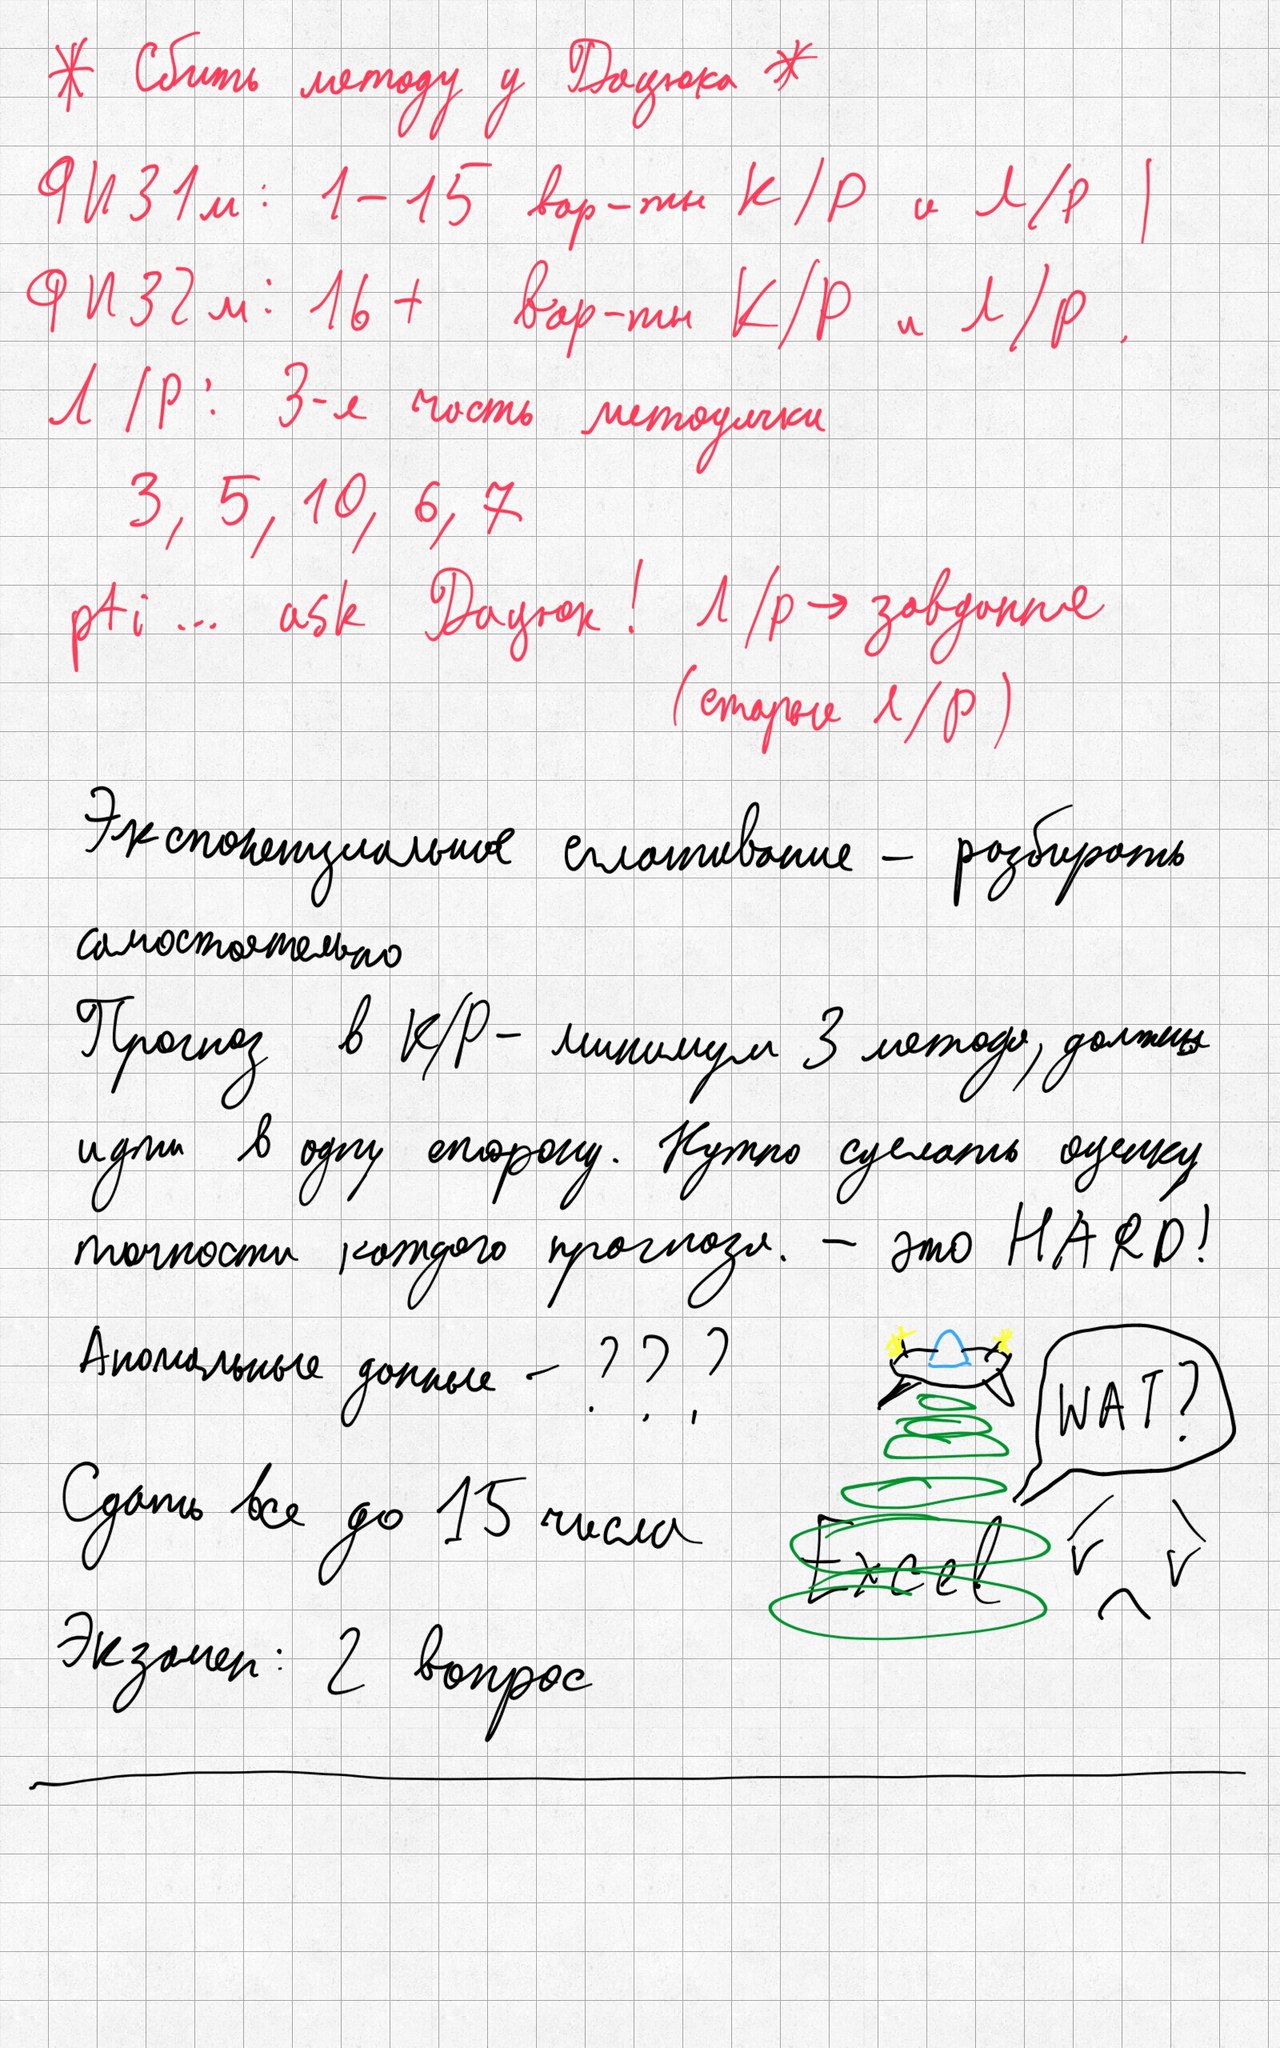 * Сбить методу у Дацюка *
ФИЗ1м: 1-15 вар-ты К/Р и л/р
ФИЗ2м: 16+ вар-ты К/Р и л/р.
Л/Р: 3-я часть методички
3, 5, 10, 6, 7
pti... ask Дацюк! л/р → завдання
(старые л/р)
Экспоненциальное сглаживание - разбирать
самостоятельно
Прогноз в К/Р - минимум 3 метода, должны
идти в одну сторону. Нужно сделать оценку
точности каждого прогноза. - это HARD!
Аномальные данные - ???
WAT?
Сдать все до 15 числа
Excel
Экзамен: 2 вопрос